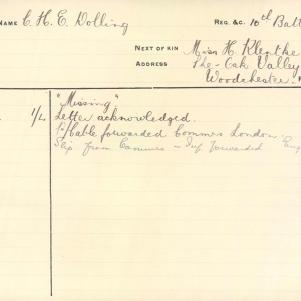 NAME C. H. E. Dolling REG. &C. 10th Batt
NEXT OF KIN Miss H. Klentke
ADDRESS The Oak Valley
Woodchester
"Missing"
1/4 Letter acknowledged.
Cable forwarded Commrs London.
Slip from Commrs – Inf. forwarded